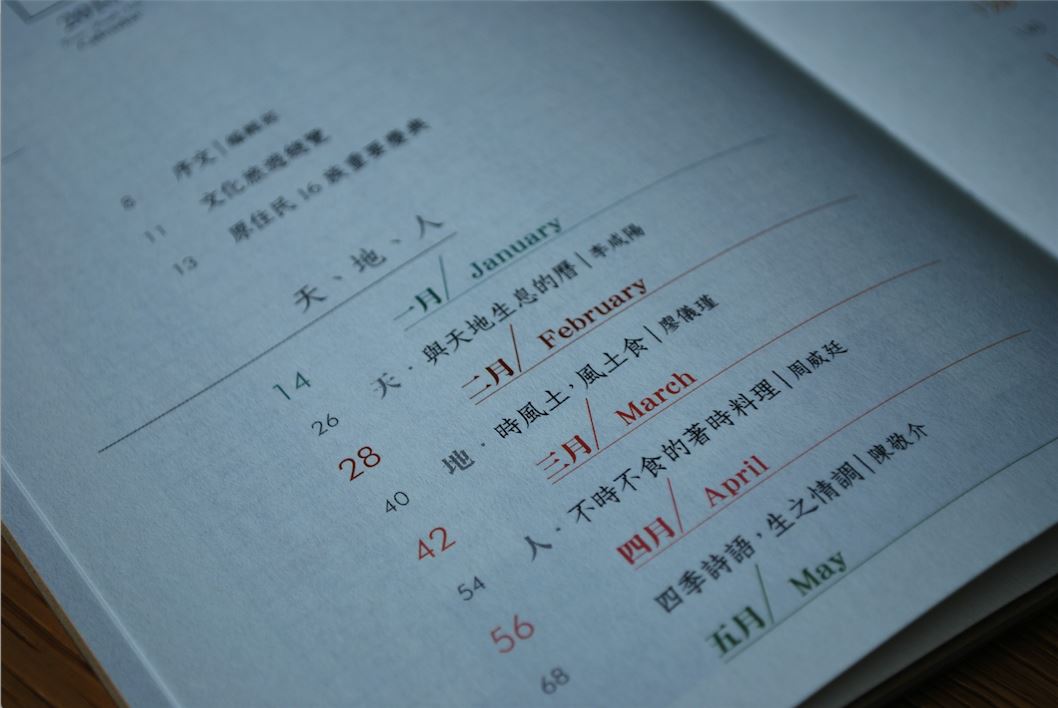 8 序文|編輯部
11 文化旅遊總覽
13 原住民 16 族重要慶典
天、地、人
14 一月/ January
26 天・與天地生息的曆|李咸陽
28 二月/ February
40 地・時風土,風土食|廖儀瑾
42 三月/ March
54 人・不時不食的著時料理|周威廷
56 四月/ April
68 四季詩語,生之情調|陳敬介
五月/ May